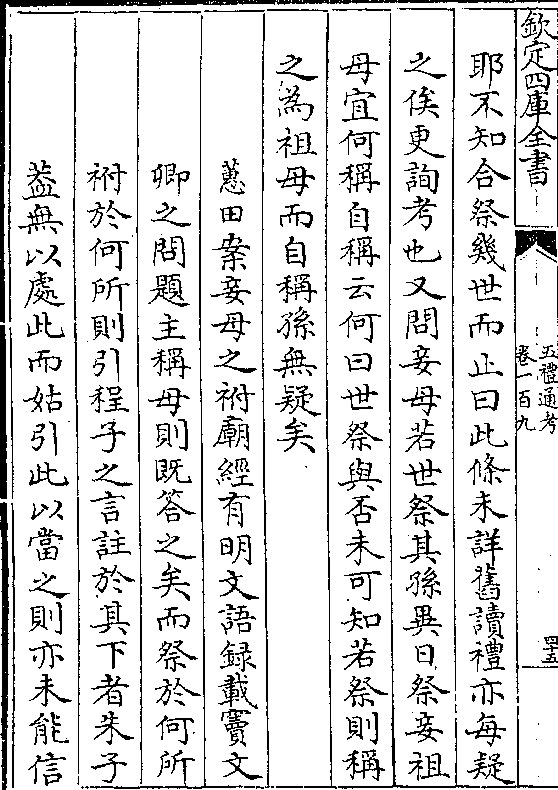 欽定四庫全書
五禮通考
卷一百九
四十五
耶不知合祭幾世而止曰此條未詳舊讀禮亦每疑
之俟更詢考也又問妾母若世祭其孫異日祭妾祖
母宜何稱自稱云何曰世祭與否未可知若祭則稱
之為祖母而自稱孫無疑矣
蕙田案妾母之祔廟經有明文語録載竇文
卿之問題主稱母則既答之矣而祭於何所
祔於何所則引程子之言註於其下者朱子
葢無以處此而姑引此以當之則亦未能信